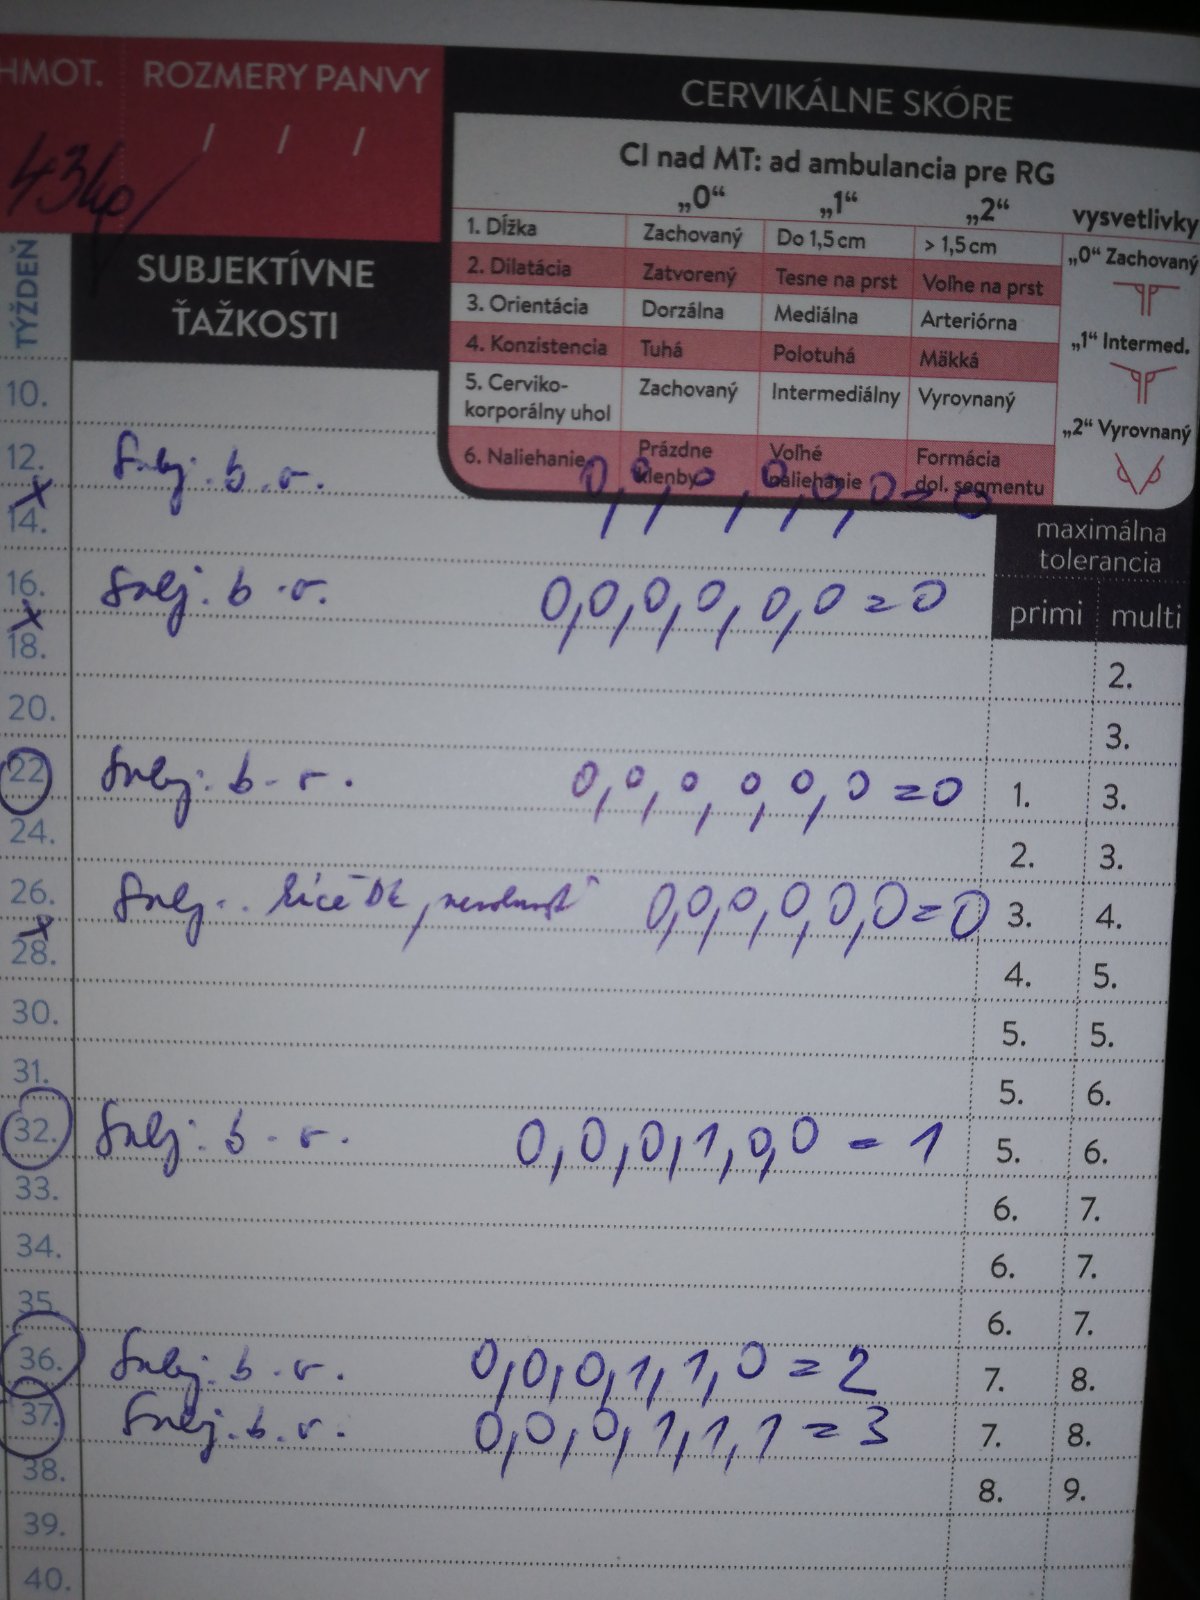 HMOT. ROZMERY PANVY
/ / /
CERVIKÁLNE SKÓRE
CI nad MT: ad ambulancia pre RG
„0“ „1“ „2“ vysvetlivky
1. Dĺžka Zachovaný Do 1,5 cm > 1,5 cm
2. Dilatácia Zatvorený Tesne na prst Voľne na prst
3. Orientácia Dorzálna Mediálna Arteriórna
4. Konzistencia Tuhá Polotuhá Mäkká
5. Cerviko-
korporálny uhol Zachovaný Intermediálny Vyrovnaný
6. Naliehanie Prázdne klenby Voľné naliehanie Formácia dol. segmentu
„0“ Zachovaný
„1“ Intermed.
„2“ Vyrovnaný
TÝŽDEŇ
SUBJEKTÍVNE
ŤAŽKOSTI
maximálna
tolerancia
primi multi
10.
12. Subj: b.o. 0,0,0,0,0,0=0
14.
16. Subj: b.o. 0,0,0,0,0,0=0
18. 2.
20. 3.
22 Subj: b.o. 0,0,0,0,0,0=0 1. 3.
24. 2. 3.
26. Subj.. DK, 0,0,0,0,0,0=0 3. 4.
28. 4. 5.
30. 5. 5.
31. 5. 6.
32. Subj: b.o. 0,0,0,1,0,0 = 1 5. 6.
33. 6. 7.
34. 6. 7.
35. 6. 7.
36. Subj: b.o. 0,0,0,1,1,0 = 2 7. 8.
37. Subj: b.o. 0,0,0,1,1,1 = 3 7. 8.
38. 8. 9.
39.
40.